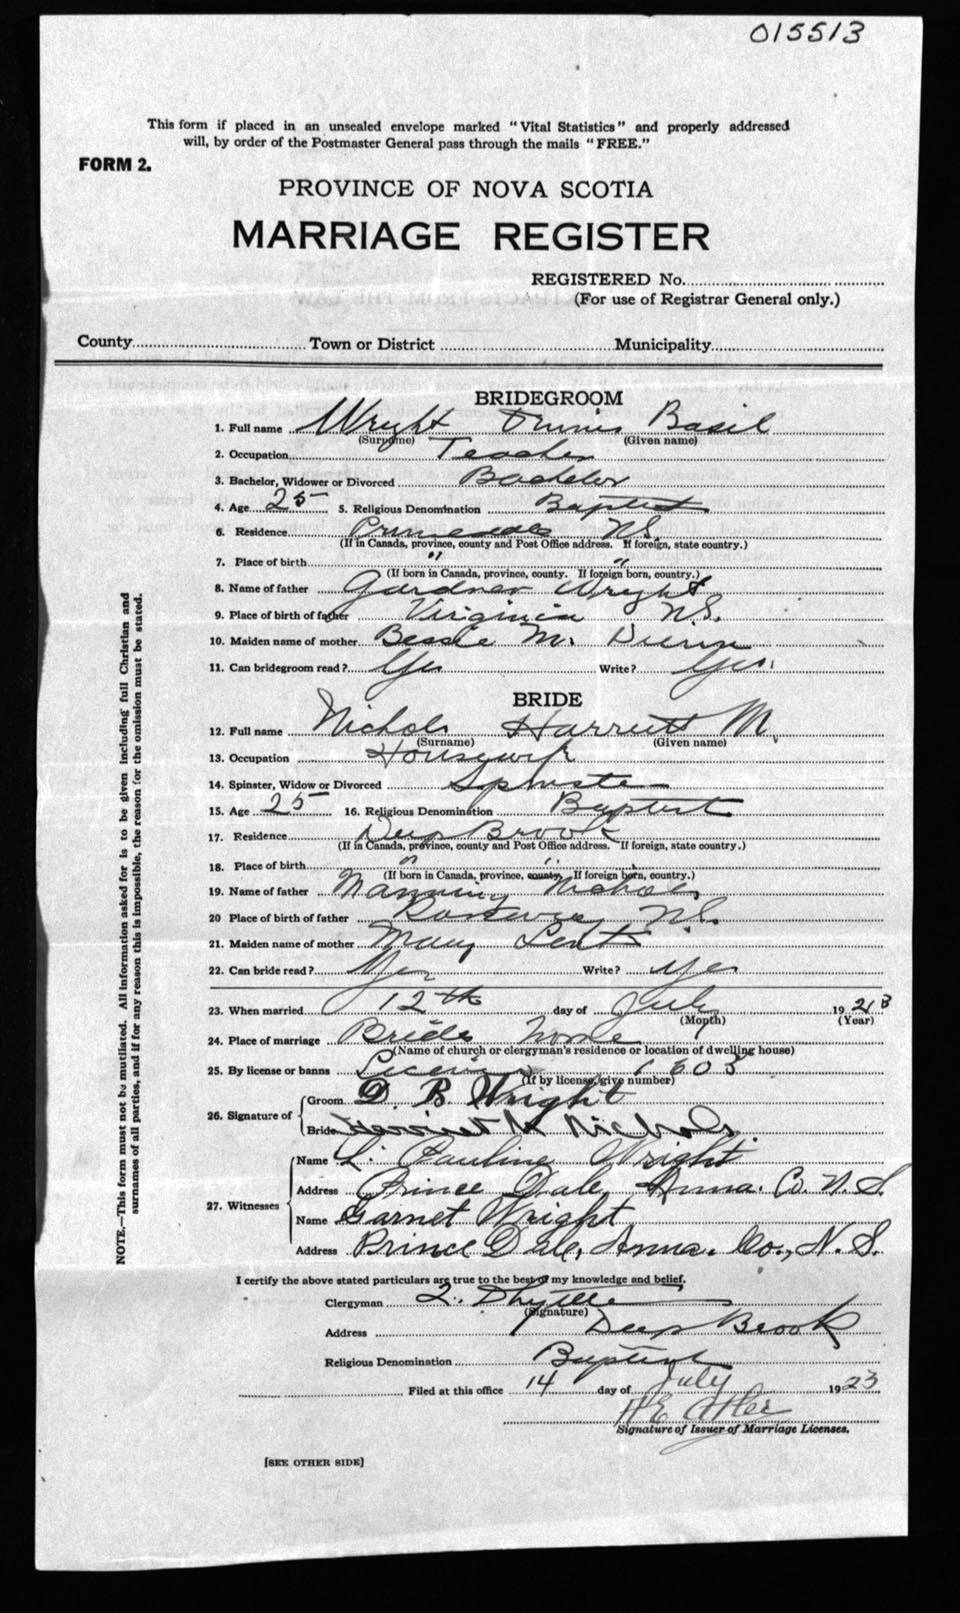 015513
This form if placed in an unsealed envelope marked "Vital Statistics" and properly addressed
will, by order of the Postmaster General pass through the mails "FREE."
FORM 2.
PROVINCE OF NOVA SCOTIA
MARRIAGE REGISTER
REGISTERED No.
(For use of Registrar General only.)
County Town or District Municipality
BRIDEGROOM
1. Full name Wright Basil
(Surname) (Given name)
2. Occupation Teacher
3. Bachelor, Widower or Divorced Bachelor
4. Age 25 5. Religious Denomination Baptist
6. Residence N.S.
(If in Canada, province, county and Post Office address. If foreign, state country.)
7. Place of birth " "
(If born in Canada, province, county. If foreign born, country.)
8. Name of father Gardner Wright
9. Place of birth of father Virginia N.S.
10. Maiden name of mother Bessie M. Dunn
11. Can bridegroom read? Yes Write? Yes
BRIDE
12. Full name Nichols Harriett M.
(Surname) (Given name)
13. Occupation Housewife
14. Spinster, Widow or Divorced Spinster
15. Age 25 16. Religious Denomination Baptist
17. Residence Deep Brook
(If in Canada, province, county and Post Office address. If foreign, state country.)
18. Place of birth " "
(If born in Canada, province, county. If foreign born, country.)
19. Name of father Manning Nichols
20 Place of birth of father Rossway N.S.
21. Maiden name of mother Mary Lent
22. Can bride read? Yes Write? Yes
23. When married 12th day of July 1923
(Month) (Year)
24. Place of marriage Brides home
(Name of church or clergyman's residence or location of dwelling house)
25. By license or banns License 1603
(If by license, give number)
26. Signature of
Groom D. B. Wright
Bride Harriet M Nichols.
27. Witnesses
Name L. Pauline Wright
Address Prince Dale, Anna. Co. N.S.
Name Garnet Wright
Address Prince Dale, Anna. Co., N.S.
I certify the above stated particulars are true to the best of my knowledge and belief.
Clergyman
(Signature)
Address Deep Brook
Religious Denomination Baptist
Filed at this office 14 day of July 1923
Signature of Issuer of Marriage Licenses.
[SEE OTHER SIDE]
NOTE.—This form must not be mutilated. All information asked for is to be given including full Christian and
surnames of all parties, and if for any reason this is impossible, the reason for the omission must be stated.